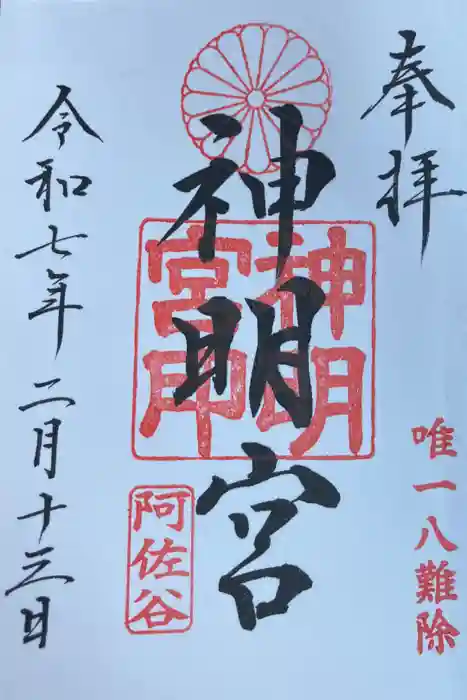 奉拝
唯一八難除
神明宮
神明
宮印
阿佐谷
令和七年二月十三日